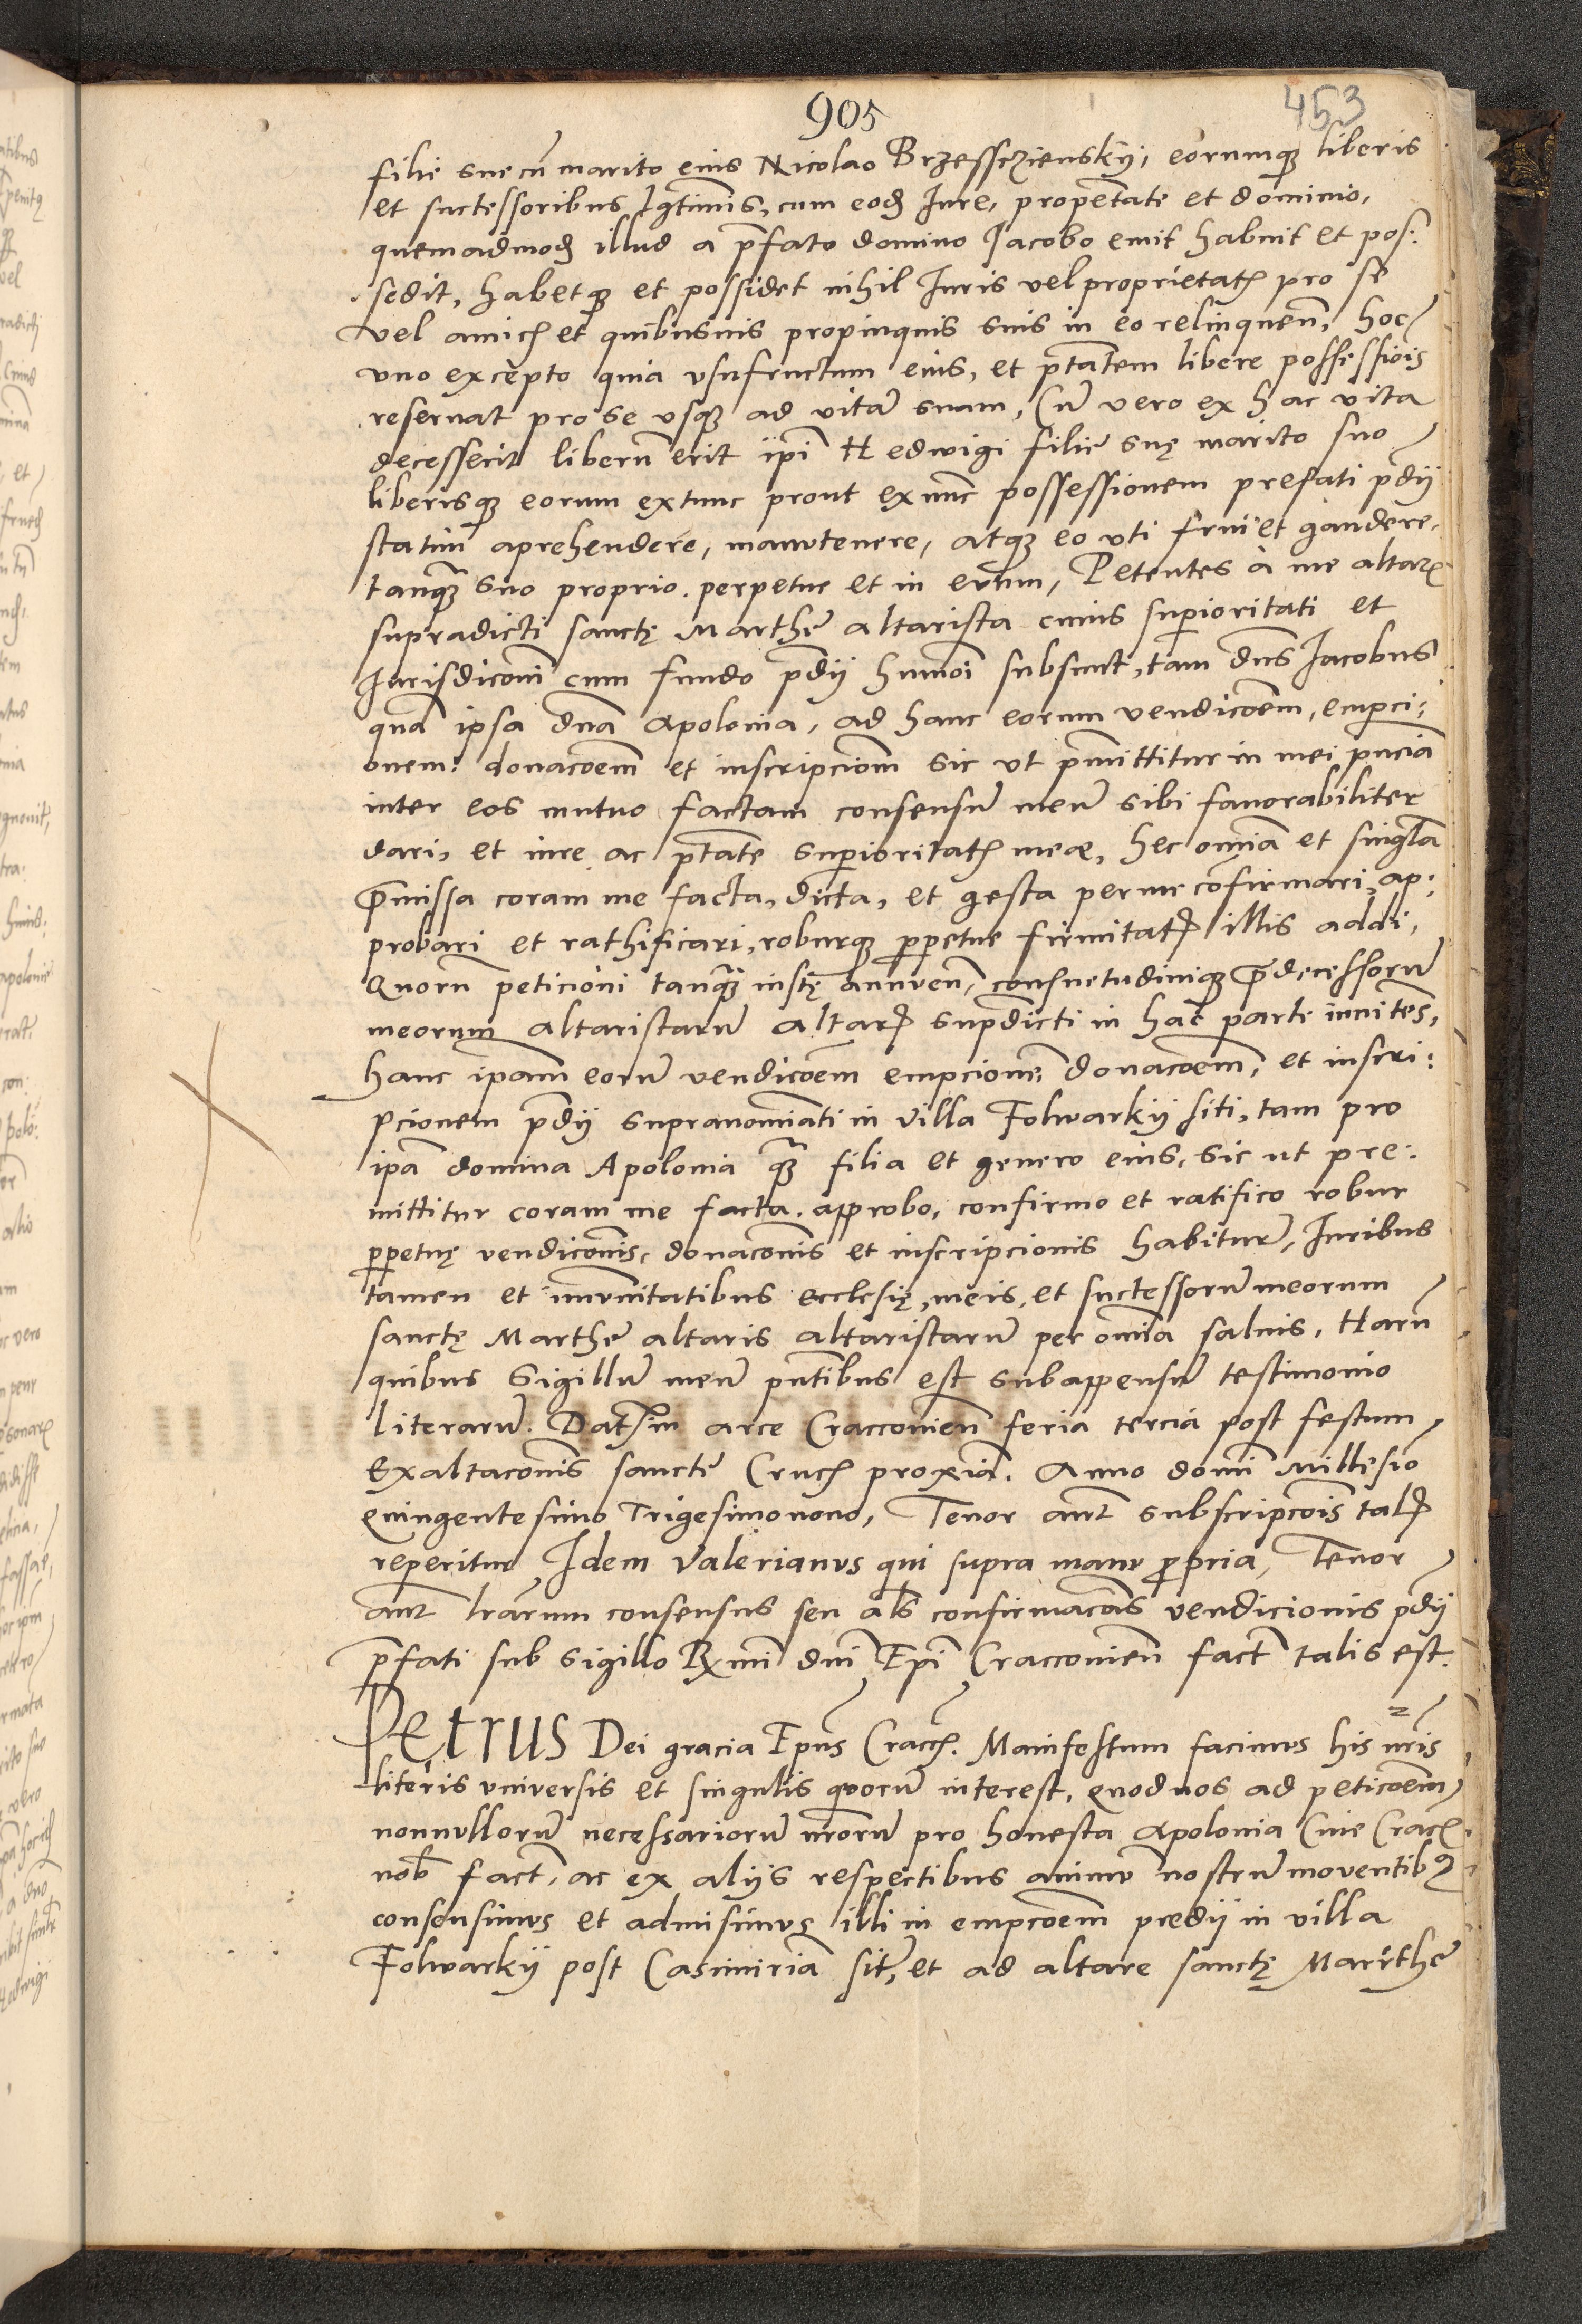 905
453
filie sue cū marito eius Nicolao Brzessczienskÿ, eorumqꝫ liberis
et suctessoribus lgtimis, cum eodꝫ Iure, proprietate et dominio,
quemadmodꝫ illud a p̄fato domino Jacobo emit habuit et pos:
sedit, habetqꝫ et possidet nihil Iuris vel proprietatꝭ pro se
vel amicꝭ et quibusuis propinquis suis in eo relinquen̄, hoc
vno excepto quia vsufructum eius, et ptātem libere possessiōis
reseruat pro se vsqꝫ ad vitā suam, Cū vero ex hac vita
decesserit liberū erit ip̄i Hedwigi filie suę marito suo
liberisqꝫ eorum extunc prout ex nūc possessionem prefati p̄dÿ
statim aprehendere, manutenere, atqꝫ eo vti frui et gaudere,
tanqꝫ suo proprio. perpetue et in euum, Petentes à me altarꝭ
supradicti sanctę Marthe altarista cuius supioritati et
Jurisdicōni cum fundo p̄dÿ hmōi subsunt, tam dn̄s Jacobus
quā ipsa dn̄a Apolonia, ad hanc eorum vendicōem, empci:
onem: donacōem et inscripciōm sic vt p̄mittitur in mei pn̄cia
inter eos mutuo factam consensū meū sibi fauorabiliter
dari, et iure ac ptāte supioritatꝭ meæ, hec omīa et singl̄a
p̄missa coram me facta, dicta, et gesta per me cōnfirmari, ap:
probari et rathificari, roburqꝫ ꝑpetue firmitatꝭ illis addi,
Quorū peticioni tanqꝫ iustę annuen̄, consuetudiniqꝫ p̄decessorū
meorum altaristarū altarꝭ supdicti in hac parte innitēs,
hanc ipam̄ eorū vendicōem empcionē donacōem, et inscri:
pcionem p̄dÿ supranoīnati in villa Folwarkÿ siti, tam pro
ipā domina Apolonia qꝫ filia et genero eius, sic ut pre:
mittitur coram me facta. approbo, confirmo et ratifico robur
ꝑpetuę vendicōnis, donacōnis et inscripcionis habiturā, Iuribus
tamen et immunitatibus ecclesię, meis, et suctessorū meorum
sanctę Marthe altaris altaristarū per omīa saluis, Harū
quibus Sigillū meū pn̄tibus est subappensū testimonio
literarū. Datꝭ in arce Cracconien̄ feria tercia post festum
exaltacōnis sancte Crucꝭ proxīa. Anno domī Millesīo
quingentesimo Trigesimonono, Tenor aut̄ subscripcōis talꝭ
reperitur, Idem Valerianus qui supra manu propria, Tenor
aut̄ lrārum consensus seu al̄s confirmacōis vendicionis p̄dÿ
p̄fati sub sigillo Rx̄mi dn̄i Epī Cracconien̄ fact̄ talis est.
Petrus Dei gracia Epūs Craccꝭ. Manifestum facimus his nr̄is
literis vniversis et singulis quorū interest, quod nos ad peticōem
nonnullorū necessariorū nrōrū pro honesta Apolonia Ciue Cracꝭ
nob̄ fact̄, ac ex alÿs respectibus animū nostrū moventibꝰ
consensimus et admisimus illi in empcōem predÿ in villa
Folwarkÿ post Casimiriā sit̄, et ad altare sanctę Marthe